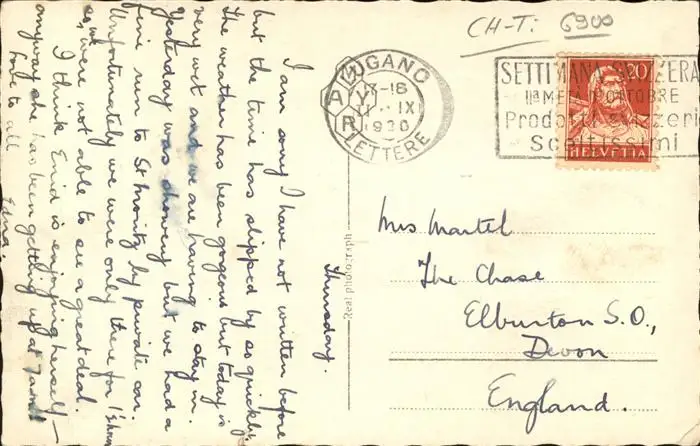 CH-T: 6900
LUGANO
X-16
IX
1930
LETTERE
SETTIMANA SVIZZERA
IIª METÀ OTTOBRE
Prodotti svizzeri
Sceltissimi
20
HELVETIA
Thursday.
I am sorry I have not written before
but the time has slipped by so quickly
The weather has been gorgeous but today is
very wet and we are having to stay in.
Yesterday was showery but we had a
fine run to St Moritz by private car.
Unfortunately we were only there for 1½ hours
so we were not able to see a great deal.
I think Enid is enjoying herself –
anyway she has been getting up at 7am!!
Love to all
Edna.
Real photograph
Mrs Martel
The Chase
Elburton S.O.,
Devon
England.